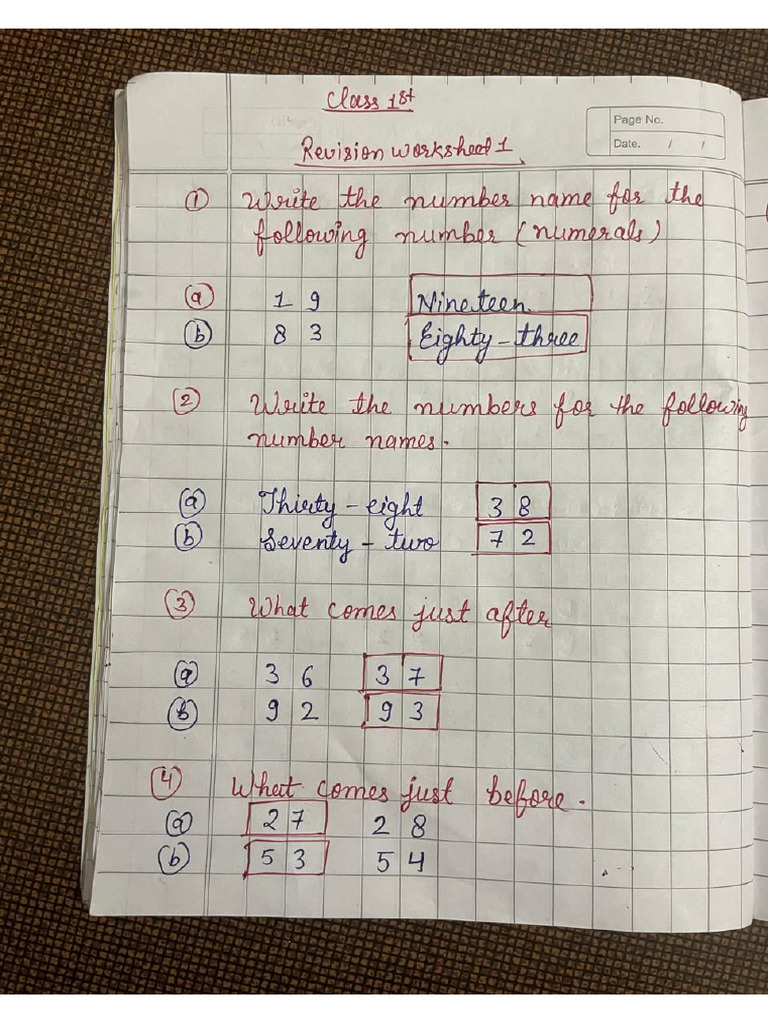 Class 1st
Page No.
Date. / /
Revision worksheet 1
① Write the number name for the
following number (numerals)
ⓐ 1 9 Nineteen
ⓑ 8 3 Eighty-three
② Write the numbers for the following
number names.
ⓐ Thirty-eight 3 8
ⓑ Seventy-two 7 2
③ What comes just after
ⓐ 3 6 3 7
ⓑ 9 2 9 3
④ What comes just before.
ⓐ 2 7 2 8
ⓑ 5 3 5 4